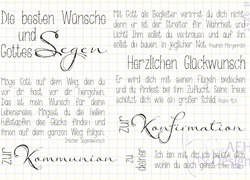 Die besten Wünsche
und
Gottes Segen
Möge Gott auf dem Weg, den du
vor dir hast, vor dir hergehen.
Das ist mein Wunsch für deine
Lebensreise. Mögest du die hellen
Fußstapfen des Glücks finden und
ihnen auf dem ganzen Weg folgen.
Irischer Segenswunsch
zur Kommunion
Mit Gott als Begleiter verirrst du dich nicht,
denn er ist der Streiter für Wahrheit und
Licht! Ihm sollst du vertrauen und auf ihn
sollst du bauen, in jeglicher Not.
Herzlichen Glückwunsch
Er wird dich mit seinen Flügeln bedecken
und du findest bei ihm Zuflucht. Seine Treue
schützt dich wie ein großer Schild.
zur Konfirmation
zu
deiner
Ich bin mit dir, ich behüte dich,